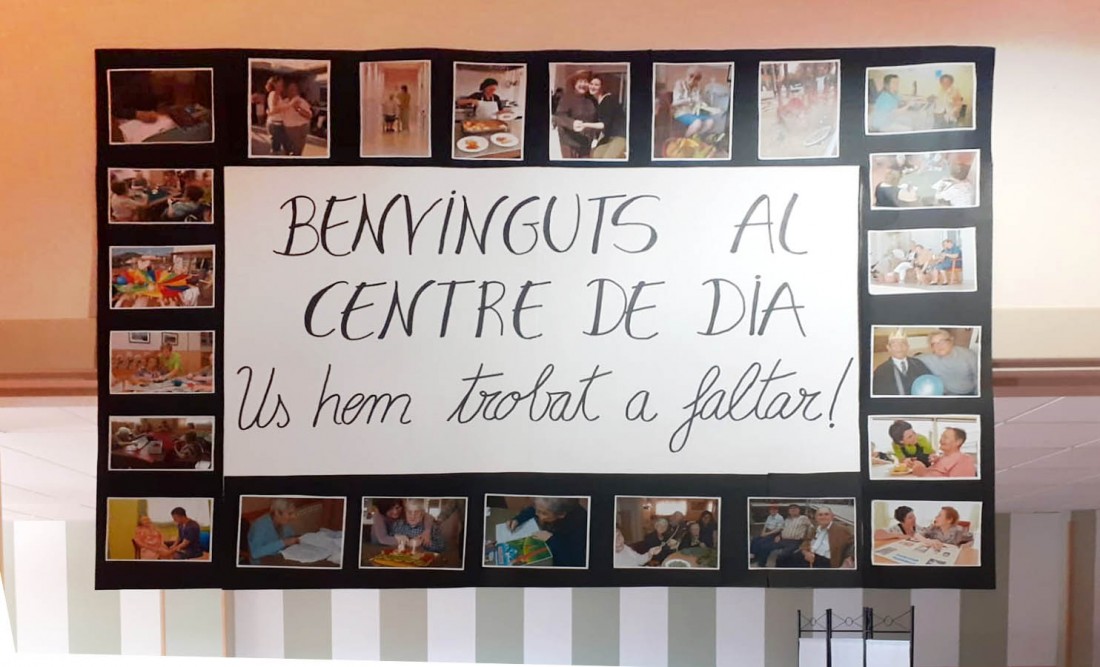 BENVINGUTS AL
CENTRE DE DIA
Us hem trobat a faltar!